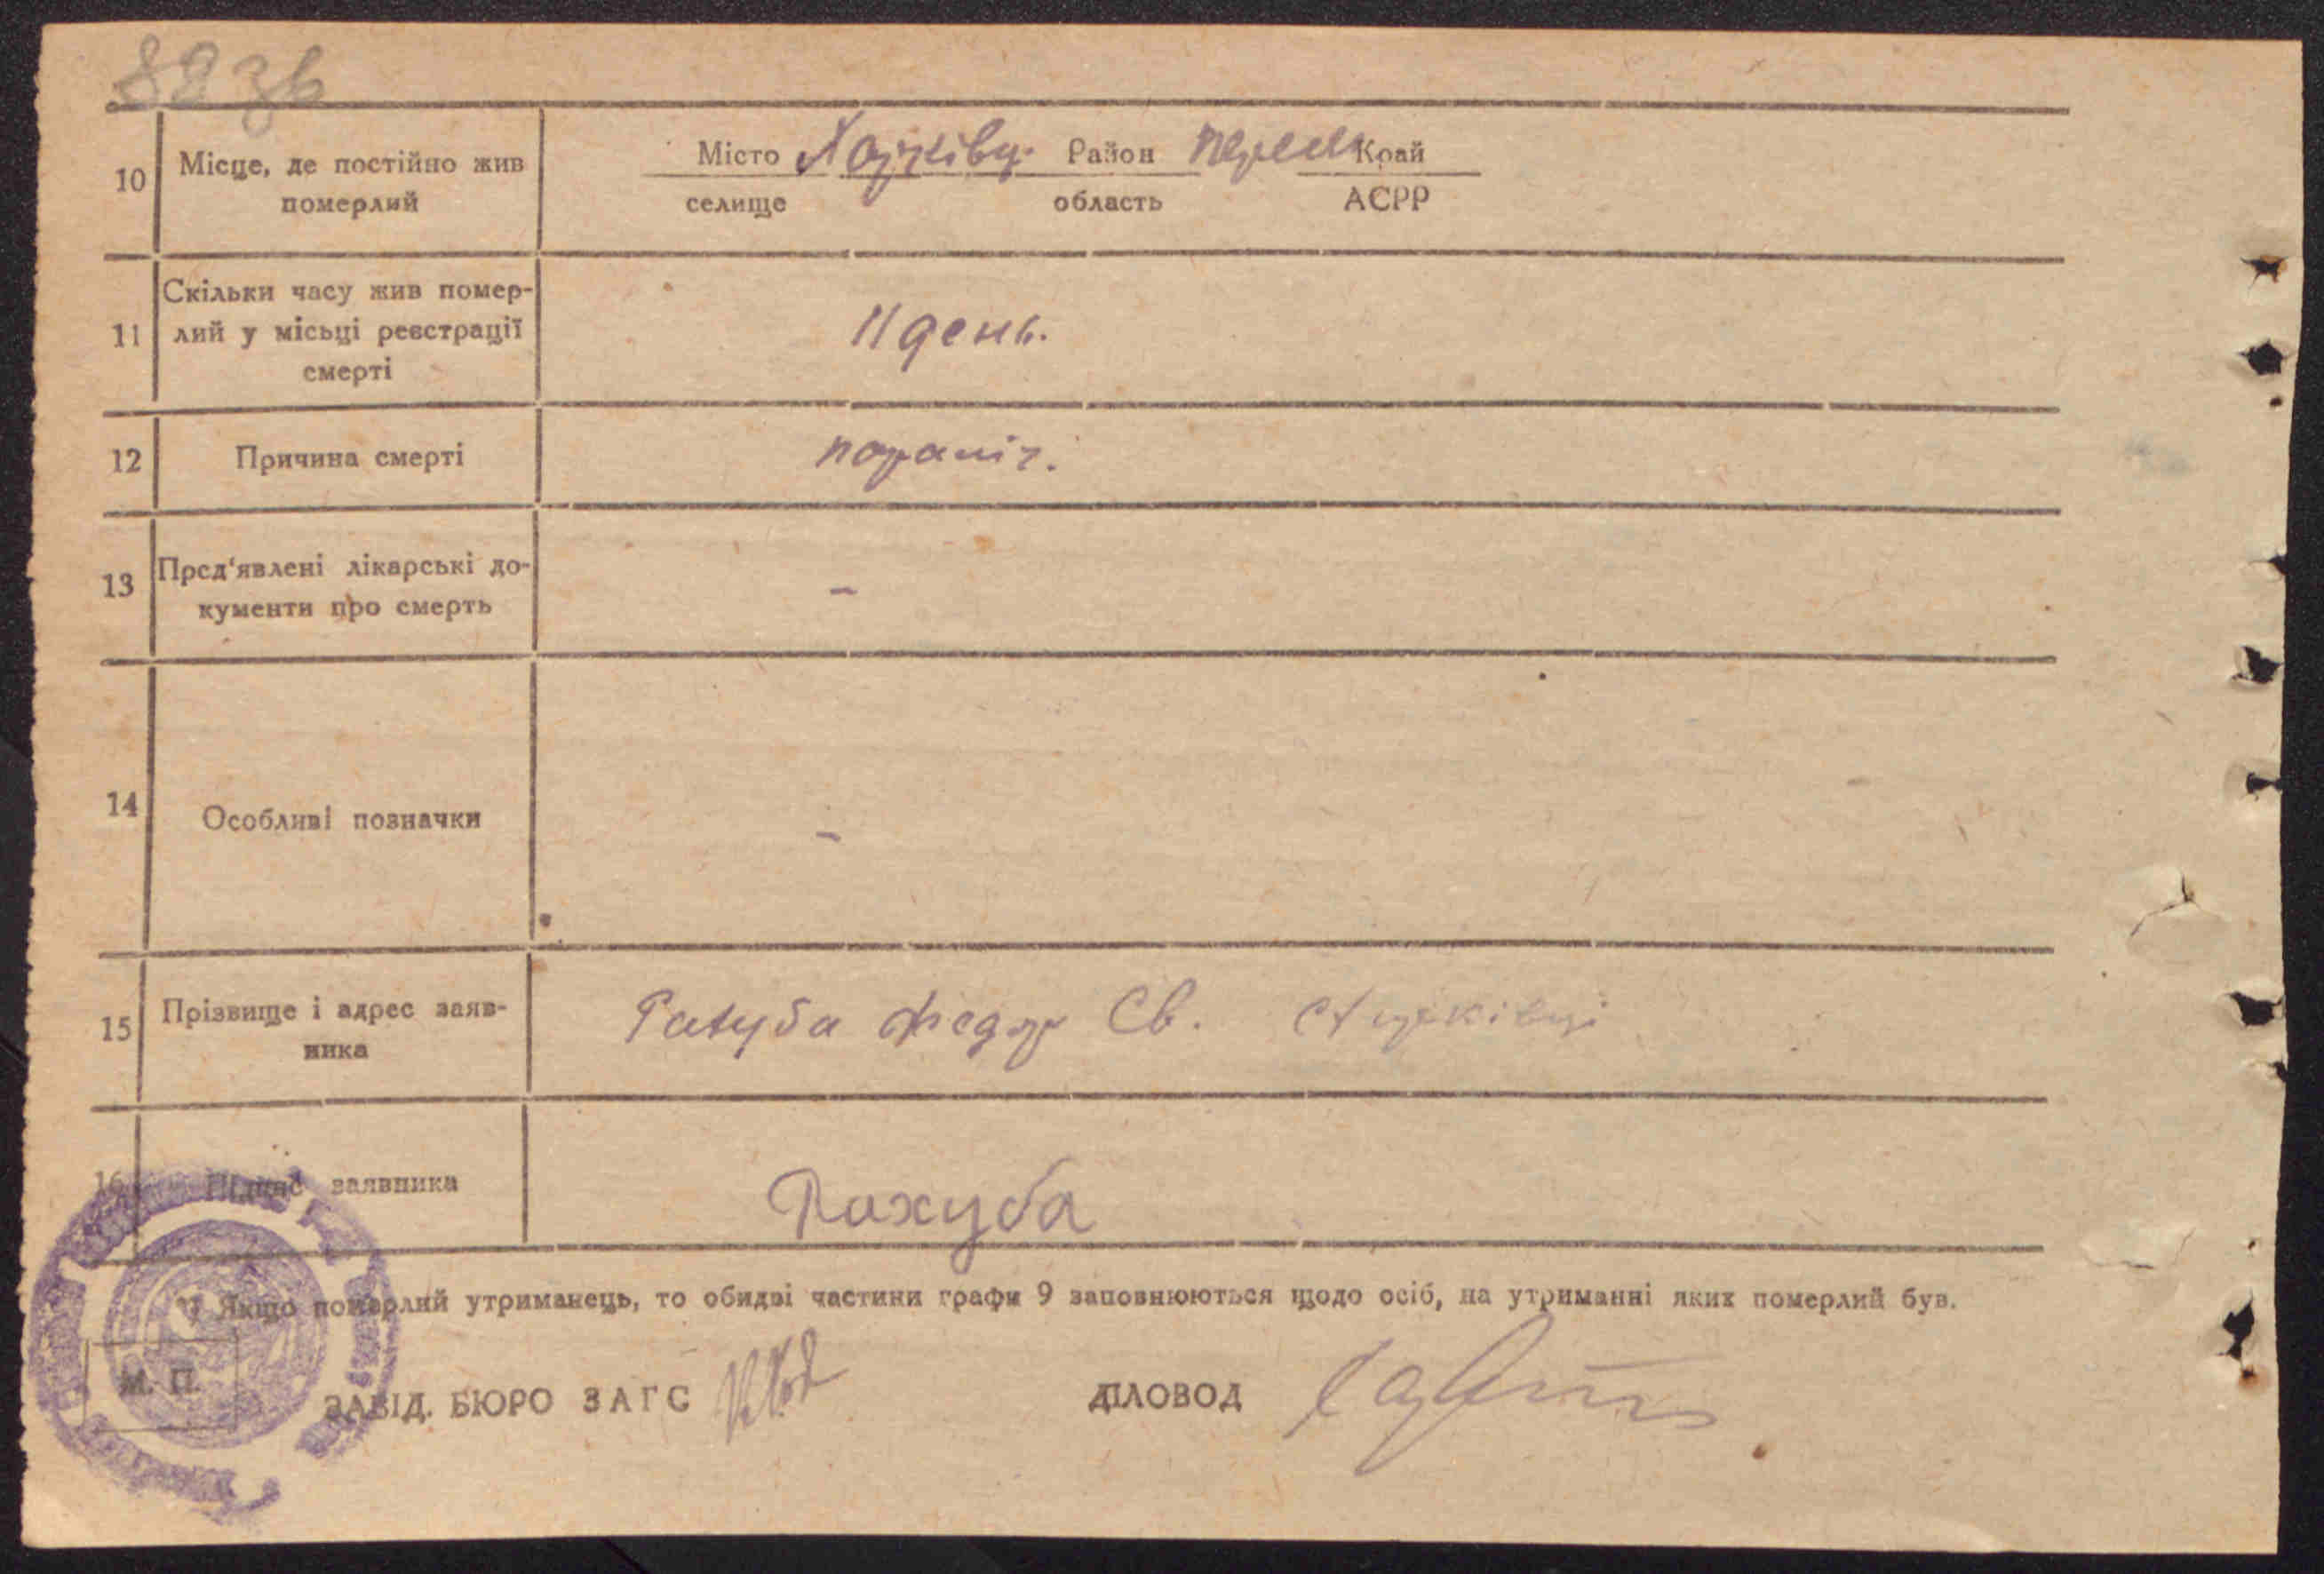 88 зв
10 Місце, де постійно жив померлий
Місто Харківці Район Переяс Край
селище область АСРР
11 Скільки часу жив помер-
лий у місьці реєстрації
смерті
11 день.
12 Причина смерті
параліч.
13 Пред'явлені лікарські до-
кументи про смерть
–
14 Особливі позначки
–
15 Прізвище і адрес заяв-
ника
Рахуба Федор Єв.
16 Підпис заявника
Рахуба
1) Якщо померлий утриманець, то обидві частини графи 9 заповнюються щодо осіб, на утриманні яких померлий був.
М. П.
ЗАВІД. БЮРО ЗАГС
ДІЛОВОД